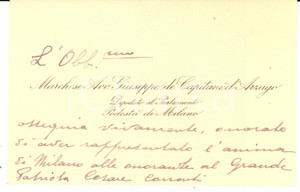 L'Obb.mo
Marchese Avv. Giuseppe de Capitani d'Arzago
Deputato al Parlamento
Podestà di Milano
ossequia vivamente, onorato
di aver rappresentato l'anima
di Milano alle onoranze al Grande
Patriota Cesare Correnti